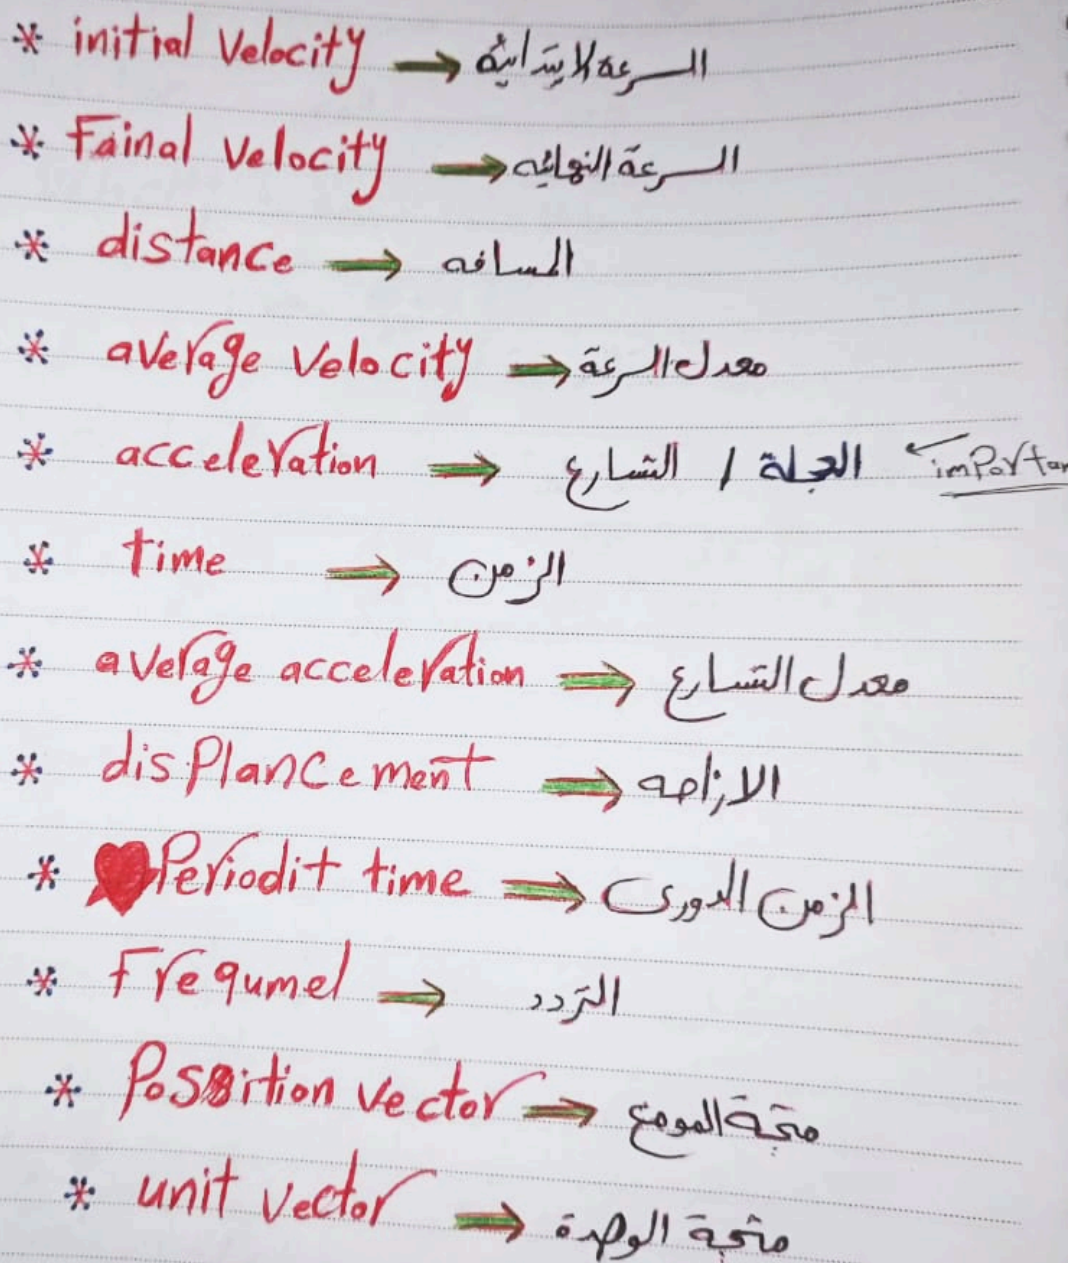 * initial velocity → السرعه لابتدائية
* Fainal velocity → السرعة النهائيه
* distance → المسافه
* average velocity → معدل السرعة
* acceleration → التسارع / العجلة ← importan
* time → الزمن
* average acceleration → معدل التسارع
* displancement → الازاحه
* Periodit time → الزمن الدورى
* Frequmel → التردد
* Position vector → متجة الموقع
* unit vector → متجة الوحدة